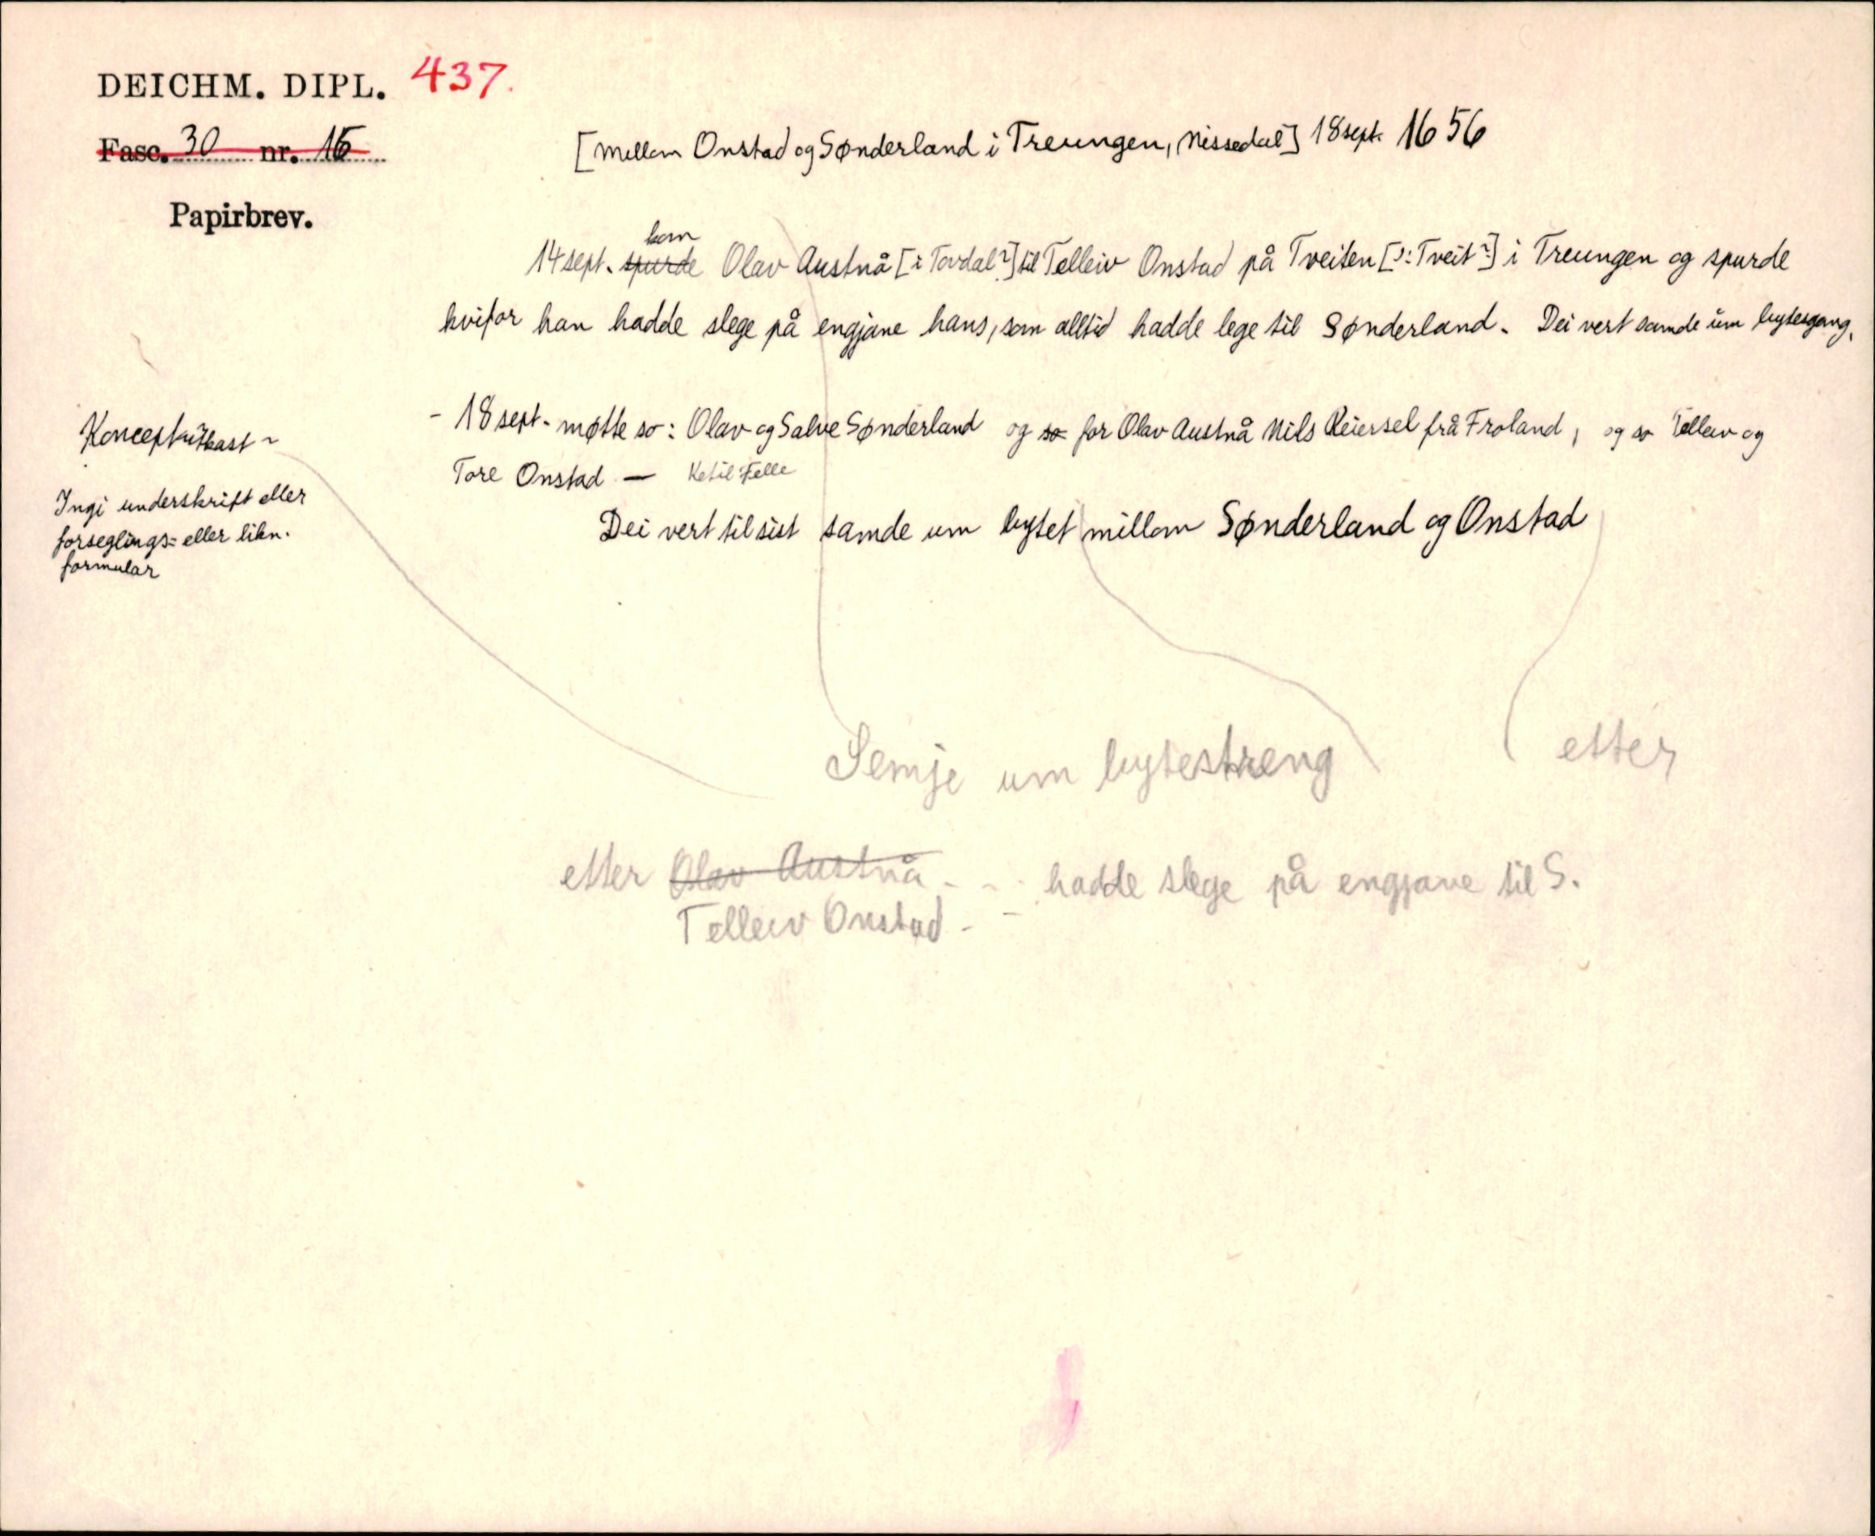 DEICHM. DIPL. 437.
Fasc. 30 nr. 16
Papirbrev.
[Millom Onstad og Sønderland i Treungen, Nissedal] 18 sept. 1656
kom
14 sept. spurde Olav Austnå [i Tovdal?] til Telleiv Onstad på Tveiten [ɔ: Tveit?] i Treungen og spurde
kvifor han hadde slege på engjane hans, som alltid hadde lege til Sønderland. Dei vert samde um bytesgang.
- 18 sept. møtte so: Olav og Salve Sønderland og so for Olav Austnå Nils Reiersel frå Froland, og so Telleiv og
Tore Onstad — Ketil Felle
Dei vert til sist samde um bytet millom Sønderland og Onstad
Konceptutkast ~
Ingi underskrift eller
forseglings= eller likn.
formular
Semje um bytestreng etter
etter Olav Austnå - - hadde slege på engjane til S.
Telleiv Onstad - -